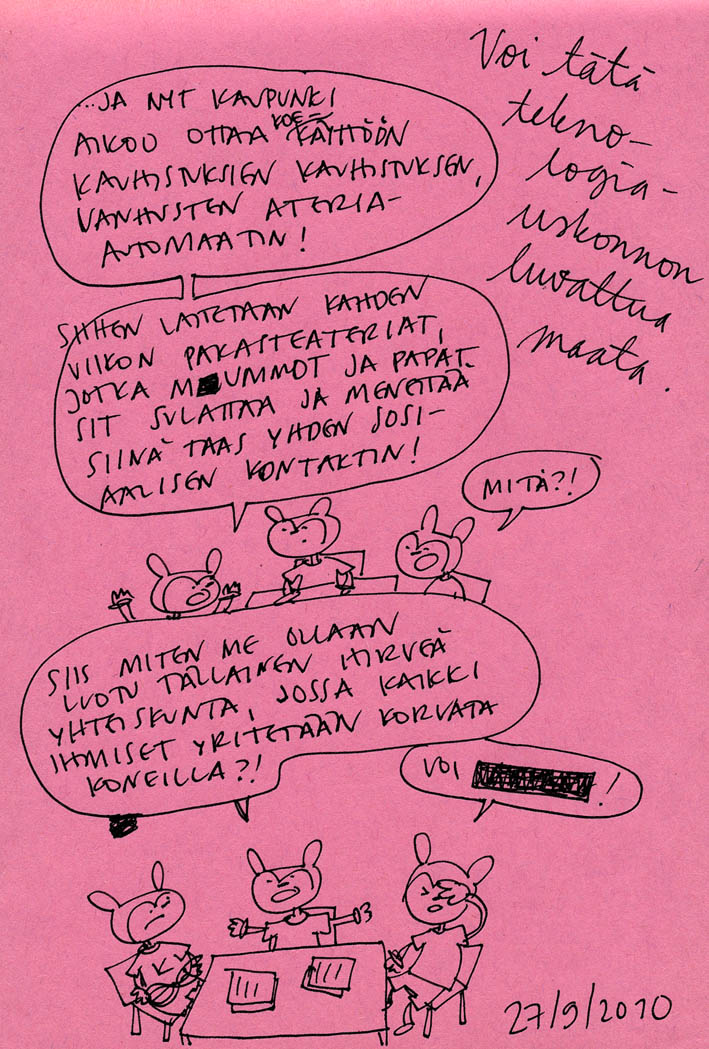 Voi tätä
tekno-
logia-
uskonnon
luvattua
maata.
...JA NYT KAUPUNKI
AIKOO OTTAA KOE-KÄYTTÖÖN
KAUHISTUKSIEN KAUHISTUKSEN,
VANHUSTEN ATERIA-
AUTOMAATIN!
SIIHEN LAITETAAN KAHDEN
VIIKON PAKASTEATERIAT,
JOTKA MUMMOT JA PAPAT
SIT SULATTAA JA MENETTÄÄ
SIINÄ TAAS YHDEN SOSI-
AALISEN KONTAKTIN!
MITÄ?!
SIIS MITEN ME OLLAAN
LUOTU TÄLLAINEN HIRVEÄ
YHTEISKUNTA, JOSSA KAIKKI
IHMISET YRITETÄÄN KORVATA
KONEILLA?!
VOI !
27/9/2010